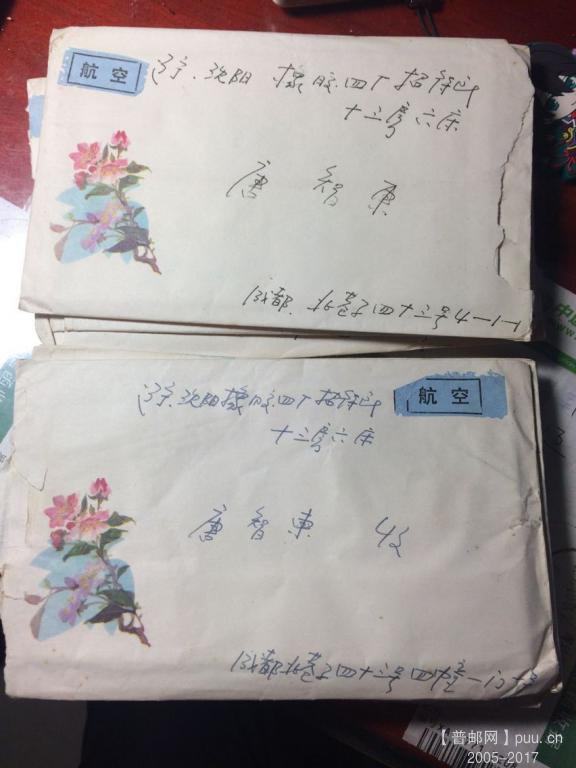 航空
辽宁.沈阳 橡胶四厂招待所
十三房六床
唐智東
成都.北巷子四十三号4-1-1
辽宁.沈阳橡胶四厂招待所
航空
十三房六床
唐智東 收
成都北巷子四十三号四幢一
【普邮网】puu.cn
2005-2017